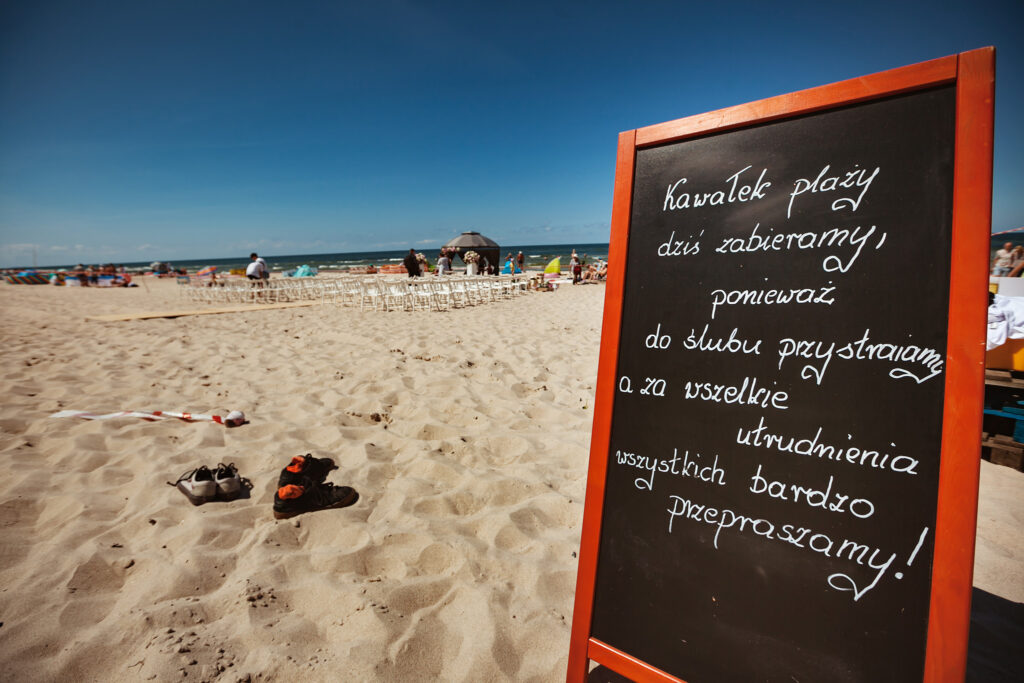 Kawałek plaży
dziś zabieramy,
ponieważ
do ślubu przystrajamy
a za wszelkie
utrudnienia
wszystkich bardzo
przepraszamy!